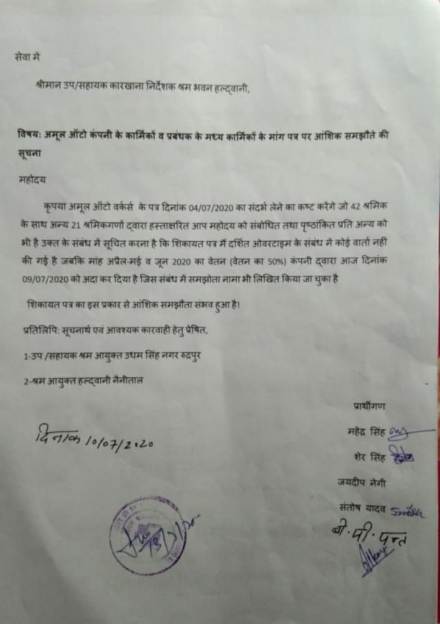 सेवा में
श्रीमान उप/सहायक कारखाना निर्देशक श्रम भवन हल्द्वानी,
विषय: अमूल ऑटो कंपनी के कार्मिकों व प्रबंधक के मध्य कार्मिकों के मांग पत्र पर आंशिक समझौते की
सूचना
महोदय
कृपया अमूल ऑटो वर्कर्स के पत्र दिनांक 04/07/2020 का संदर्भ लेने का कष्ट करेंगे जो 42 श्रमिक
के साथ अन्य 21 श्रमिकगणों द्वारा हस्ताक्षरित आप महोदय को संबोधित तथा पृष्ठांकित प्रति अन्य को
भी है उक्त के संबंध में सूचित करना है कि शिकायत पत्र में दर्शित ओवरटाइम के संबंध में कोई वार्ता नहीं
की गई है जबकि मांह अप्रैल-मई व जून 2020 का वेतन (वेतन का 50%) कंपनी द्वारा आज दिनांक
09/07/2020 को अदा कर दिया है जिस संबंध में समझोता नामा भी लिखित किया जा चुका है
शिकायत पत्र का इस प्रकार से आंशिक समझौता संभव हुआ है।
प्रतिलिपि: सूचनार्थ एवं आवश्यक कारवाही हेतु प्रेषित,
1-उप /सहायक श्रम आयुक्त उधम सिंह नगर रुद्रपुर
2-श्रम आयुक्त हल्द्वानी नैनीताल
प्रार्थीगण
दिनांक 10/07/2020
महेंद्र सिंह
शेर सिंह
जयदीप नेगी
संतोष यादव
बी.पी.पन्त